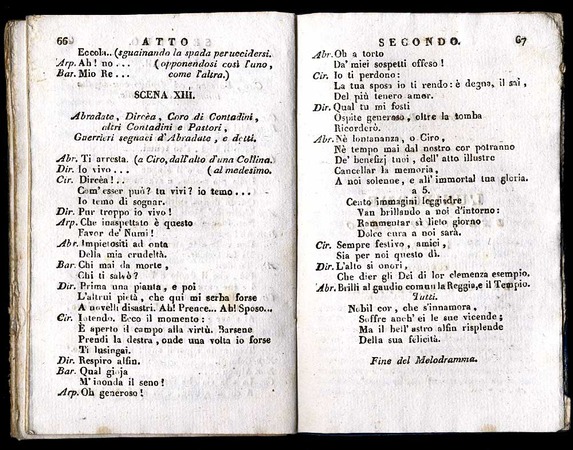 66 ATTO
Eccola.. (sguainando la spada peruccidersi.
Arp. Ah! no ... (opponendosi così l'uno,
Bar. Mio Re ... come l'altra.)
SCENA XIII.
Abradate, Dircèa, Coro di Contadini,
altri Contadini e Pastori,
Guerrieri seguaci d'Abradate, e detti.
Abr. Ti arresta. (a Ciro, dall'alto d'una Collina.
Dir. Io vivo ... (al medesimo.
Cir. Dircèa!..
Com'esser può? tu vivi? io temo...
Io temo di sognar.
Dir. Pur troppo io vivo!
Arp. Che inaspettato è questo
Favor de' Numi!
Abr. Impietositi ad onta
Della mia crudeltà.
Bar. Chi mai da morte,
Chi ti salvò?
Dir. Prima una pianta, e poi
L'altrui pietà, che qui mi serba forse
A novelli disastri. Ah! Prence... Ah! Sposo...
Cir. Intendo. Ecco il momento:
È aperto il campo alla virtù. Barsene
Prendi la destra, onde una volta io forse
Ti lusingai.
Dir. Respiro alfin.
Bar. Qual gioja
M'inonda il seno!
Arp. Oh generoso!
SECONDO. 67
Abr. Oh a torto
Da' miei sospetti offeso!
Cir. Io ti perdono:
La tua sposa io ti rendo: è degna, il sai,
Del più tenero amor.
Dir. Qual tu mi fosti
Ospite generoso, oltre la tomba
Ricorderò.
Abr. Nè lontananza, o Ciro,
Nè tempo mai dal nostro cor potranno
De' benefizj tuoi, dell' atto illustre
Cancellar la memoria,
A noi solenne, e all' immortal tua gloria.
a 5.
Cento immagini leggiadre
Van brillando a noi d'intorno:
Rammentar sì lieto giorno
Dolce cura a noi sarà.
Cir. Sempre festivo, amici,
Sia per noi questo dì.
Dir. L'alto si onori,
Che dier gli Dei di lor clemenza esempio.
Abr. Brilli al gaudio comun la Reggia, e il Tempio.
Tutti.
Nobil cor, che s'innamora,
Soffre anch' ei le sue vicende;
Ma il bell' astro alfin risplende
Della sua felicità.
Fine del Melodramma.